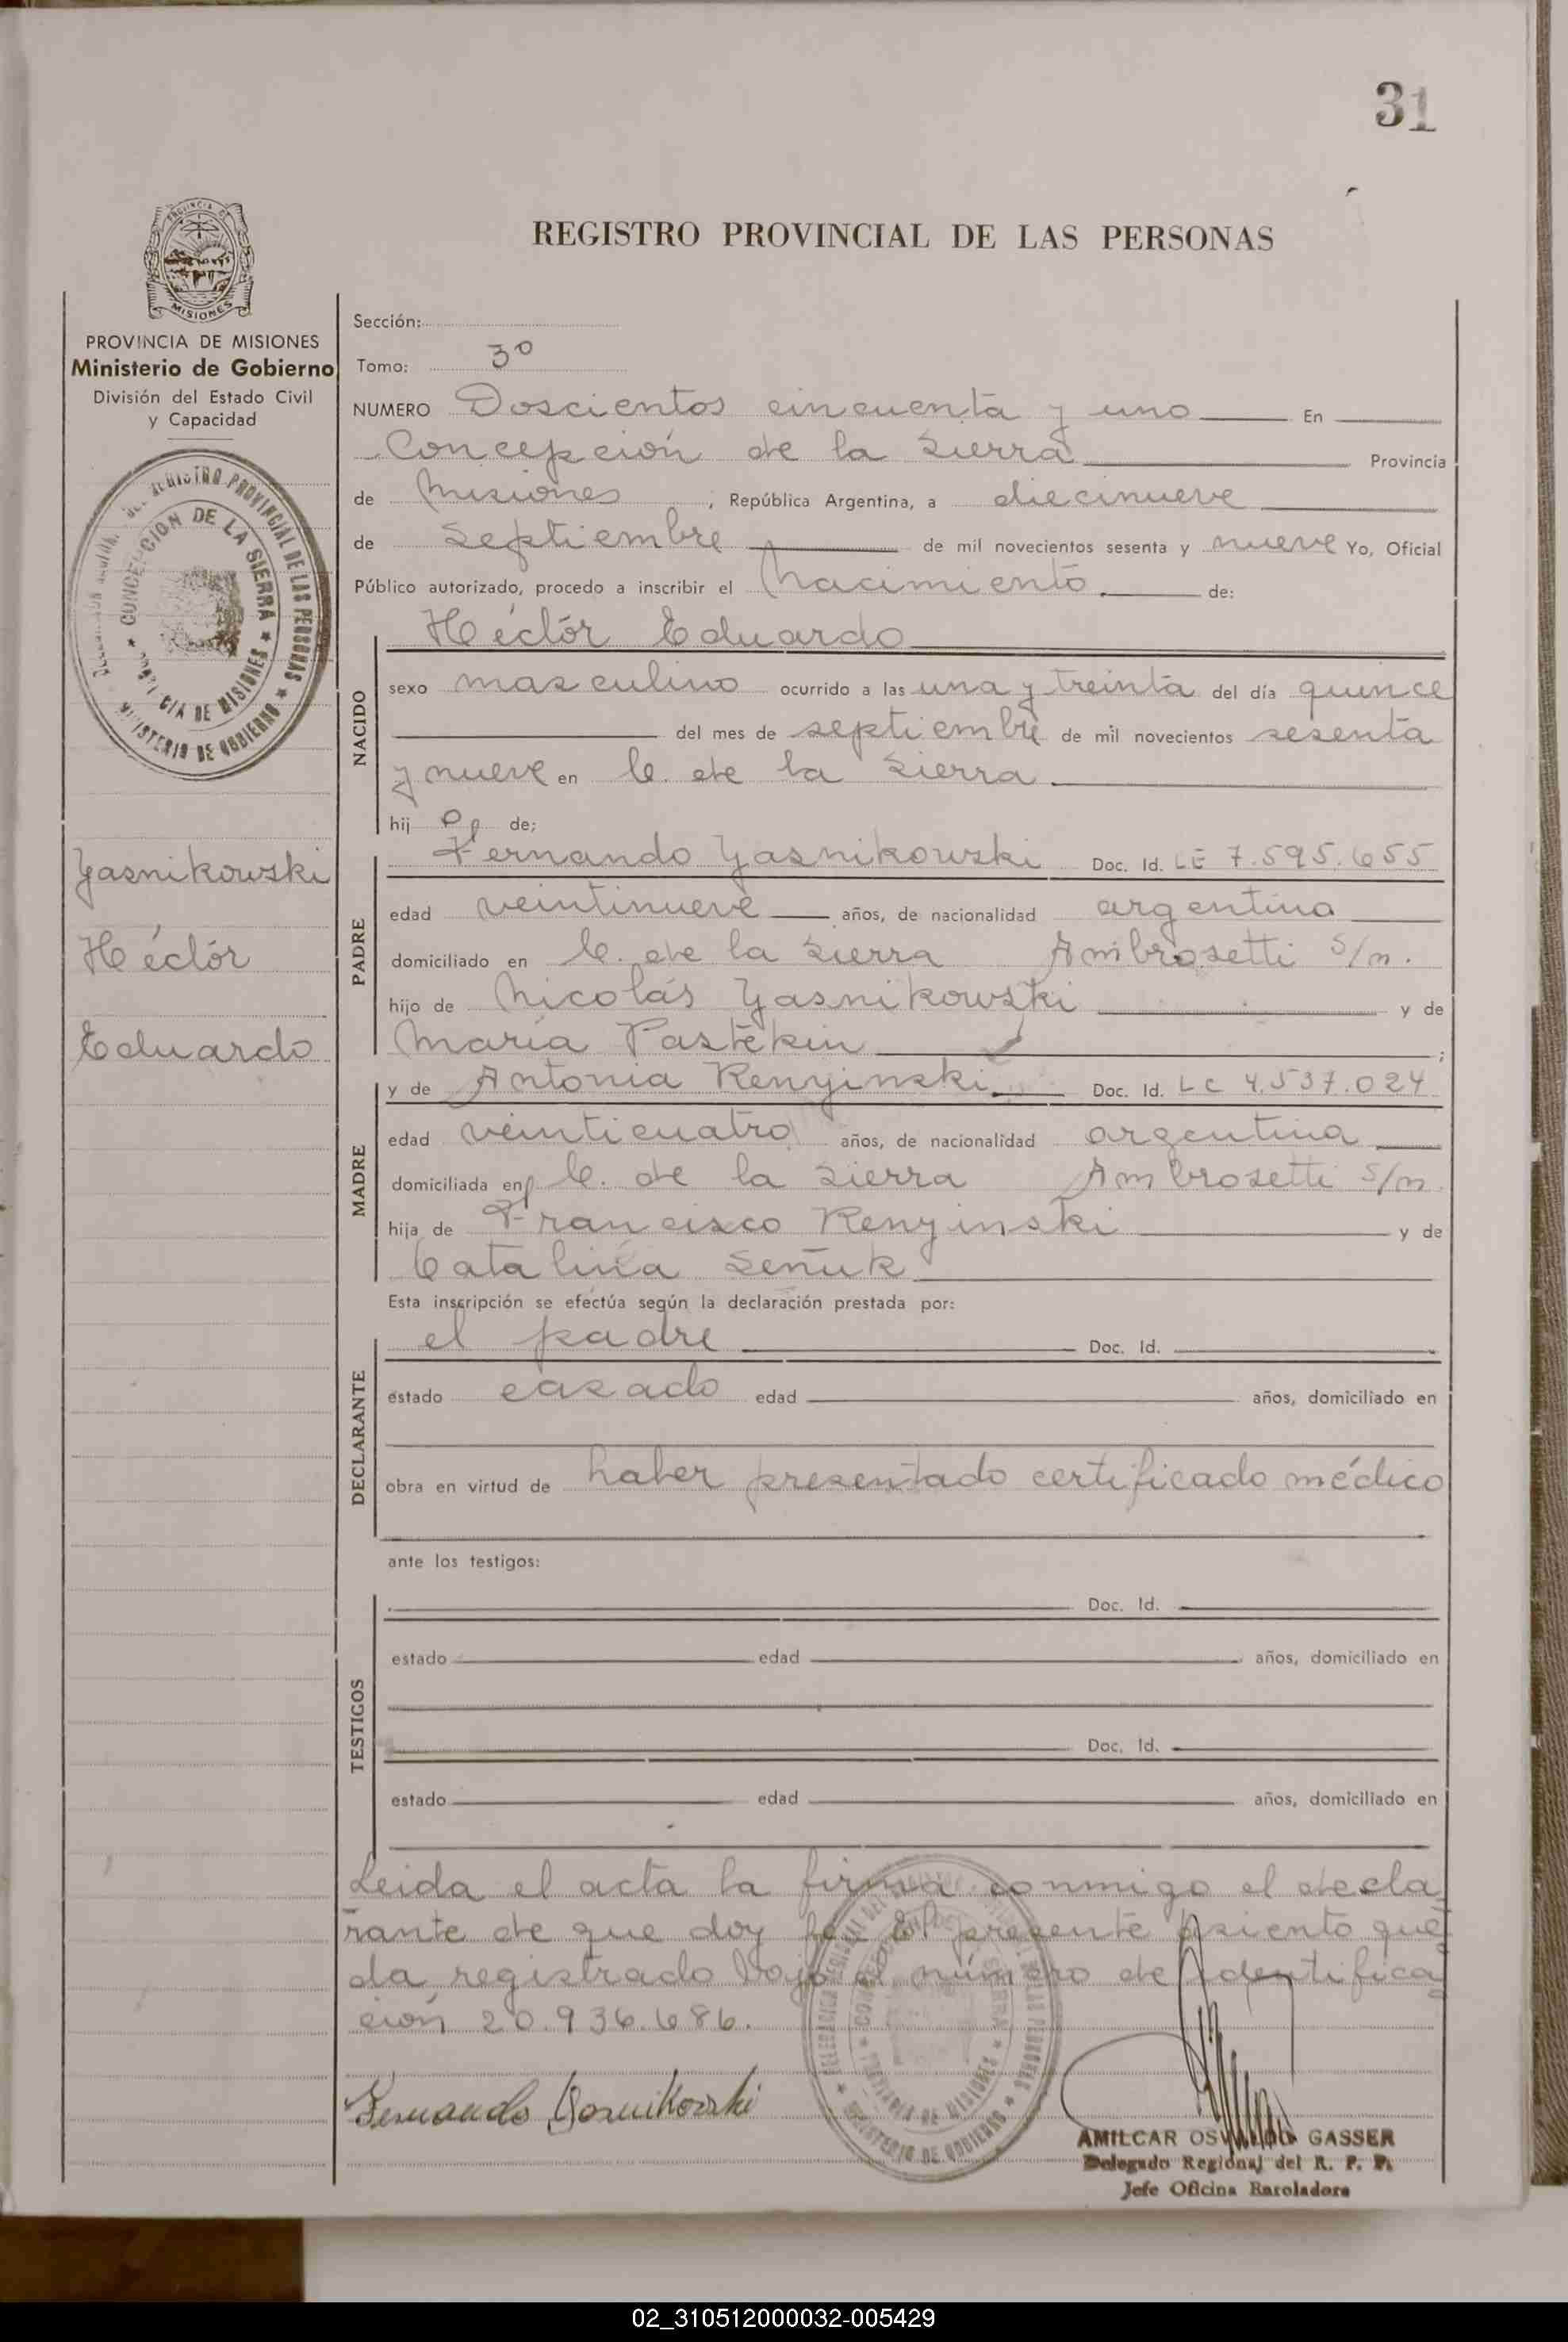 31
REGISTRO PROVINCIAL DE LAS PERSONAS
PROVINCIA DE
MISIONES
PROVINCIA DE MISIONES
Ministerio de Gobierno
División del Estado Civil
y Capacidad
REGISTRO PROVINCIAL DE LAS PERSONAS
CONCEPCION DE LA SIERRA
PROVINCIA DE MISIONES
MINISTERIO DE GOBIERNO
Yasnikowski
Héctór
Eduardo
Sección:
Tomo: 3º
NUMERO Doscientos cincuenta y uno En
Concepción de la Sierra Provincia
de Misiones, República Argentina, a diecinueve
de septiembre de mil novecientos sesenta y nueve Yo, Oficial
Público autorizado, procedo a inscribir el Nacimiento de:
NACIDO
Héctór Eduardo
sexo masculino ocurrido a las una y treinta del día quince
del mes de septiembre de mil novecientos sesenta
y nueve en C. de la Sierra
hij o de;
PADRE
Fernando Yasnikowski Doc. Id. LE 7.595.655
edad veintinueve años, de nacionalidad argentina
domiciliado en C. de la Sierra Ambrosetti S/n.
hijo de Nicolás Yasnikowski y de
María Pastekin;
MADRE
y de Antonia Kenyinski Doc. Id. LC 4.537.024
edad veinticuatro años, de nacionalidad argentina
domiciliada en C. de la Sierra Ambrosetti S/n.
hija de Francisco Kenyinski y de
Catalina Señuk
Esta inscripción se efectúa según la declaración prestada por:
DECLARANTE
el padre Doc. Id.
estado casado edad años, domiciliado en
obra en virtud de haber presentado certificado médico
ante los testigos:
TESTIGOS
Doc. Id.
estado edad años, domiciliado en
Doc. Id.
estado edad años, domiciliado en
Leida el acta la firma conmigo el decla
rante de que doy fe. El presente asiento que
da registrado bajo el número de identifica
ción 20.936.686.
Fernando Yasnikowski
CONCEPCION DE LA SIERRA
PROVINCIA DE MISIONES
MINISTERIO DE GOBIERNO
AMILCAR OSVALDO GASSER
Delegado Regional del R. P. P.
Jefe Oficina Enroladora
02_310512000032-005429